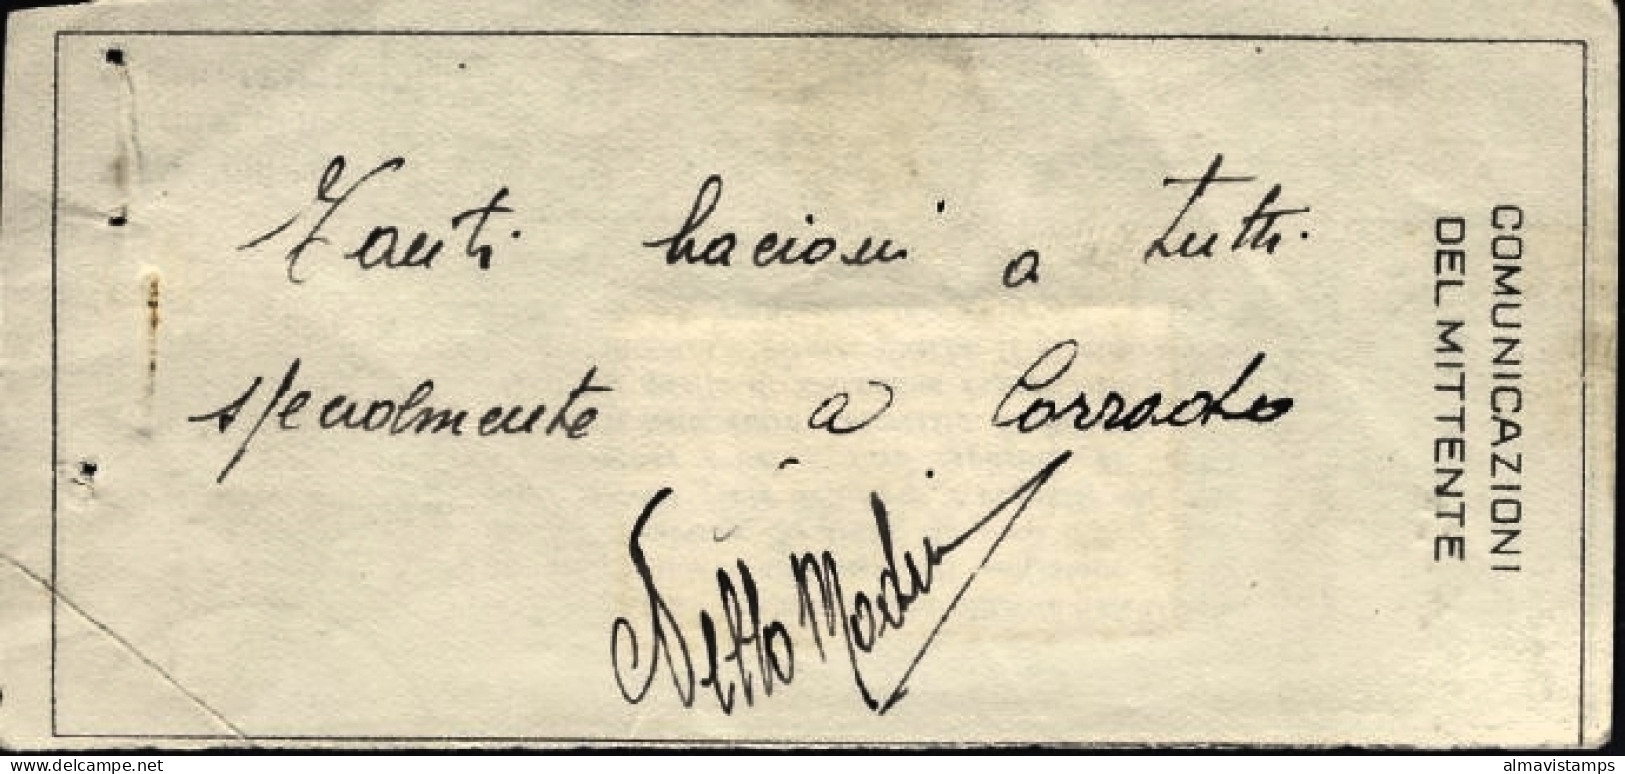 Tanti bacioni a tutti
specialmente a Corrado
Netto Modin
COMUNICAZIONI
DEL MITTENTE
almavistamps